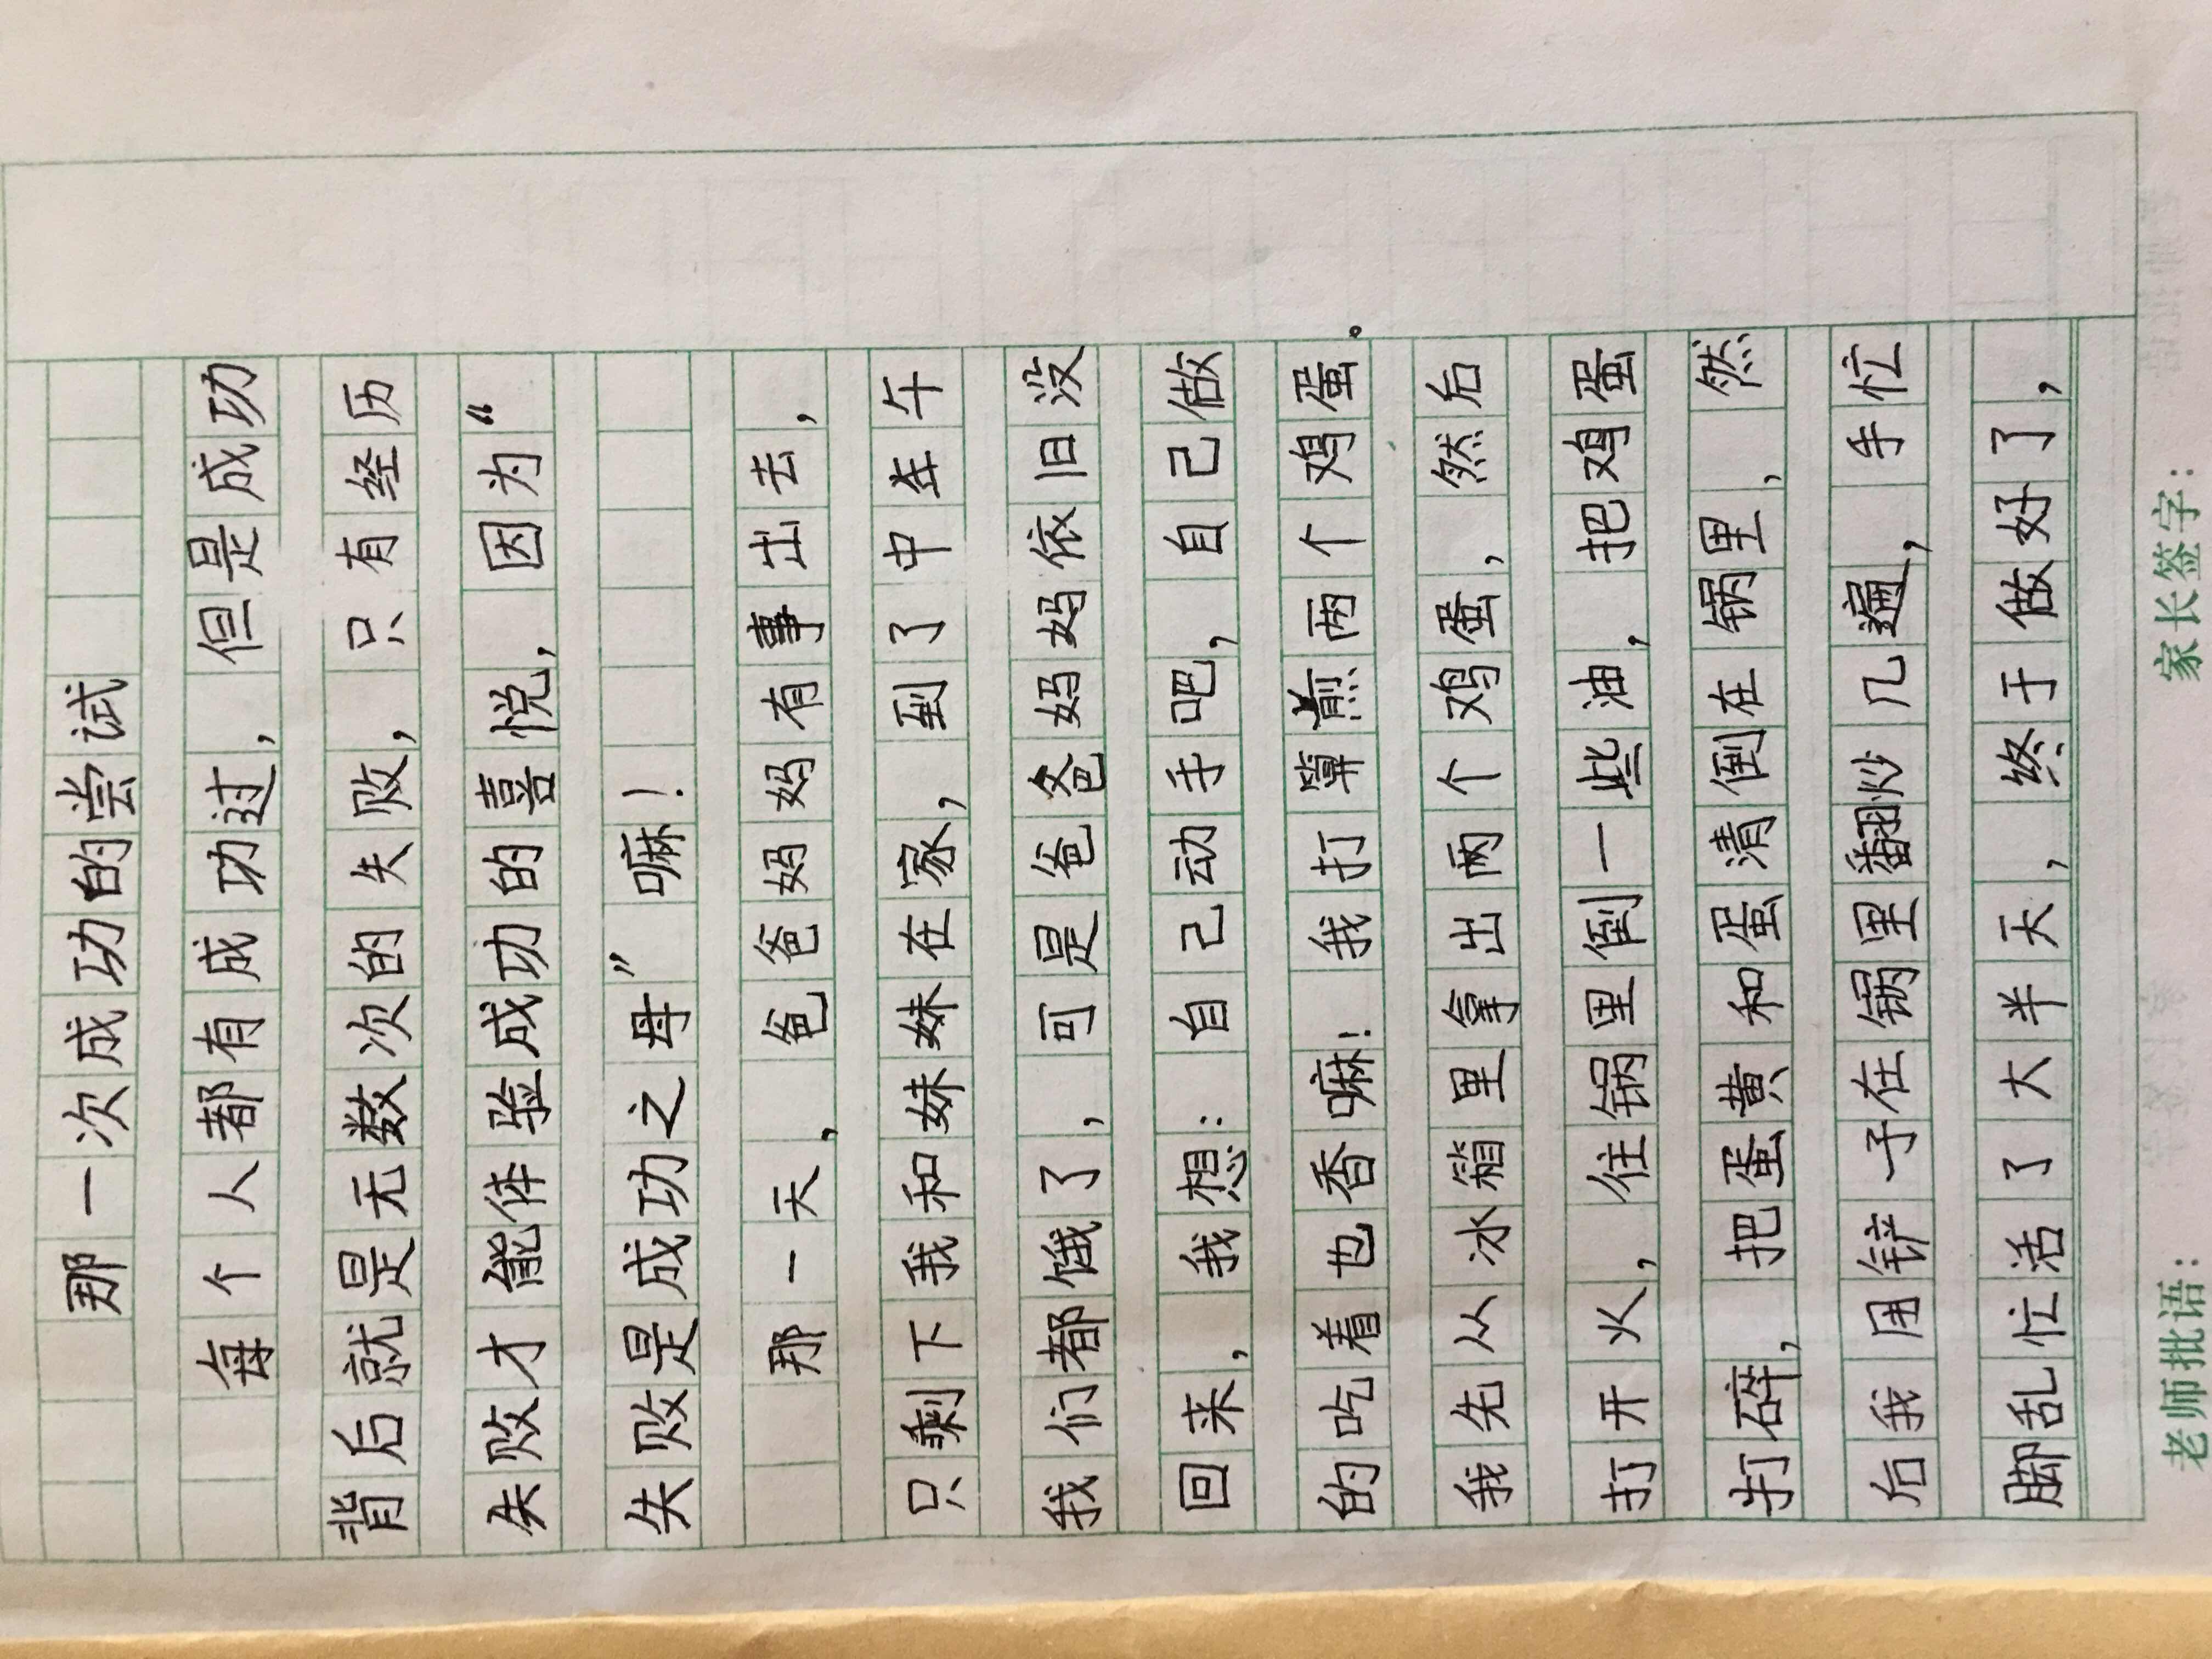 那一次成功的尝试
每个人都有成功过，但是成功
背后就是无数次的失败，只有经历
失败才能体验成功的喜悦，因为“
失败是成功之母”嘛！
那一天，爸爸妈妈有事出去，
只剩下我和妹妹在家，到了中年午
我们都饿了，可是爸爸妈妈依旧没
回来，我想：自己动手吧，自己做
的吃着也香嘛！我打算煎两个鸡蛋。
我先从冰箱里拿出两个鸡蛋，然后
打开火，住锅里倒一些油，把鸡蛋
打碎，把蛋黄和蛋清倒在锅里，然
后我用铲子在锅里翻炒几遍，手忙
脚乱忙活了大半天，终于做好了，
老师批语： 家长签字：